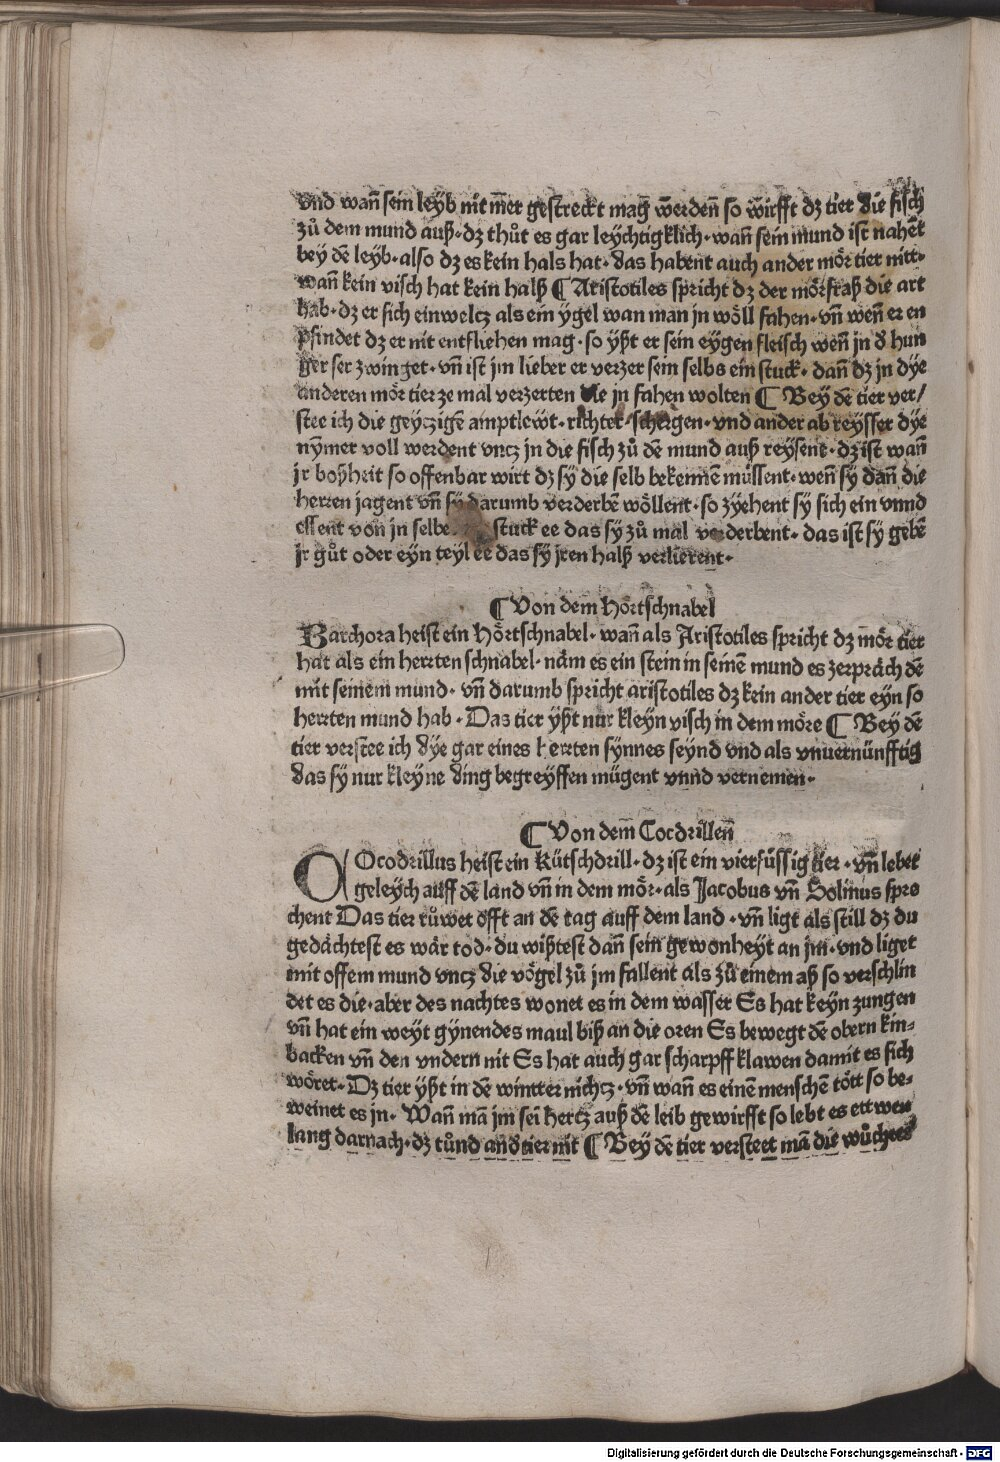 vnd wañ sein leyb nit mer gestreckt mag werdeñ so wirfft dz tier die fisch
zů dem mund auß· dz thůt es gar leychtigklich· wañ sein mund ist nahet
bey dē leyb· also dz es kein hals hat· das habent auch ander mör tier nitt·
wañ kein visch hat kein halß ¶ Aristotiles spricht dz der mörfraß die art
hab· dz er sich einweltz als ein ygel wan man jn wöll fahen· vñ weñ er en
pfindet dz er nit entfliehen mag· so ÿßt er sein eygen fleisch weñ jn d̕ hun
ger ser zwinget· vñ ist jm lieber er verzer sein selbs ein stuck· dañ dz jn dÿe
anderen mör tier ze mal verzerten die jn fahen wolten ¶ Bey dē tier ver/
stee ich die geytzigē amptlewt· richter schergen· vnd ander ab reysser dÿe
nÿmer voll werdent vntz jn die fisch zů dē mund auß reysent· dz ist wañ
jr boßheit so offenbar wirt dz sÿ die selb bekennē müssent· weñ sÿ dañ die
herren jagent vñ sÿ darumb verderbē wöllent· so zÿehent sÿ sich ein vnnd
essent von jn selbe stuck ee das sÿ zů mal verderbent· das ist sÿ gebē
jr gůt oder eyn teÿl ee das sÿ jren halß verlierent·
¶ Von dem Hörtschnabel
Barchora heist ein Hörtschnabel· wañ als Aristotiles spricht dz mör tier
hat als ein herrten schnabel· näm es ein stein in seinē mund es zerpräch dē
mit seinem mund· vñ darumb spricht aristotiles dz kein ander tier eyn so
herrten mund hab· Das tier ÿßt nur kleyn visch in dem möre ¶ Bey dē
tier verstee ich dÿe gar eines herten sÿnnes seÿnd vnd als vnuernünfftig
das sÿ nur kleÿne ding begreÿffen mügent vnnd vernemen·
¶ Von dem Cocdrilleñ
COcodrillus heist ein Kütschdrill· dz ist ein vierfüssig tier· vñ lebet
geleÿch auff dē land vñ in dem mör· als Jacobus vñ Solinus spre
chent Das tier růwet offt an dē tag auff dem land· vñ ligt als still dz du
gedächtest es wär tod· du wißtest dañ sein gewonheÿt an jm· vnd liget
mit offem mund vntz die vögel zů jm fallent als zů einem aß so verschlin
det es die· aber des nachtes wonet es in dem wasser Es hat keÿn zungen
vñ hat ein weÿt gÿnendes maul biß an die oren Es bewegt dē obern kin-
backen vñ den vndern nit Es hat auch gar scharpff klawen damit es sich
wöret· Dz tier ÿßt in dē wintter nichtz· vñ wañ es einē menschē tött so be-
weinet es jn· Wañ mā jm sei hertz auß dē leib gewirfft so lebt es ettwen
lang darnach· dz tůnd and̕ tier nit ¶ Bey dē tier versteet mā die wůchrer
Digitalisierung gefördert durch die Deutsche Forschungsgemeinschaft - DFG